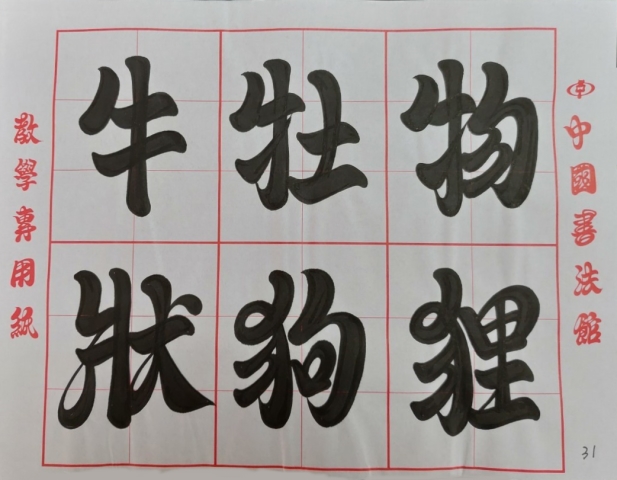 牛牡物
狀狗狸
教學專用紙
中國書法館
31